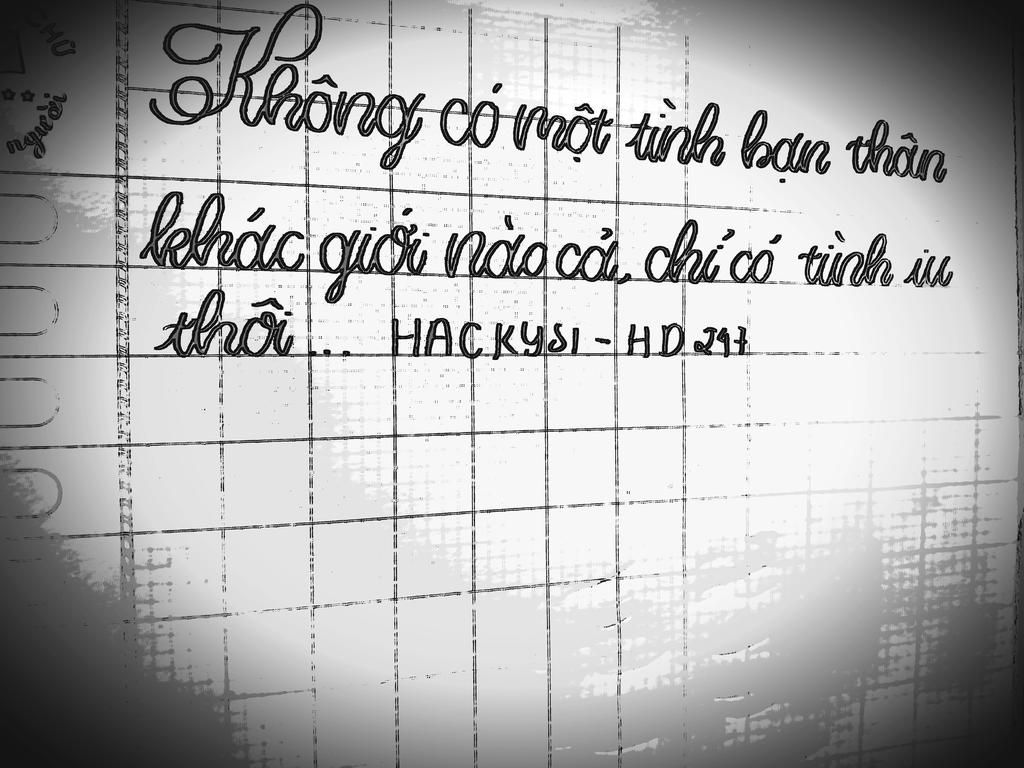 CHỮ
người
Không có một tình bạn thân
khác giới nào cả, chỉ có tình iu
thôi... HACKYSI - HD 247